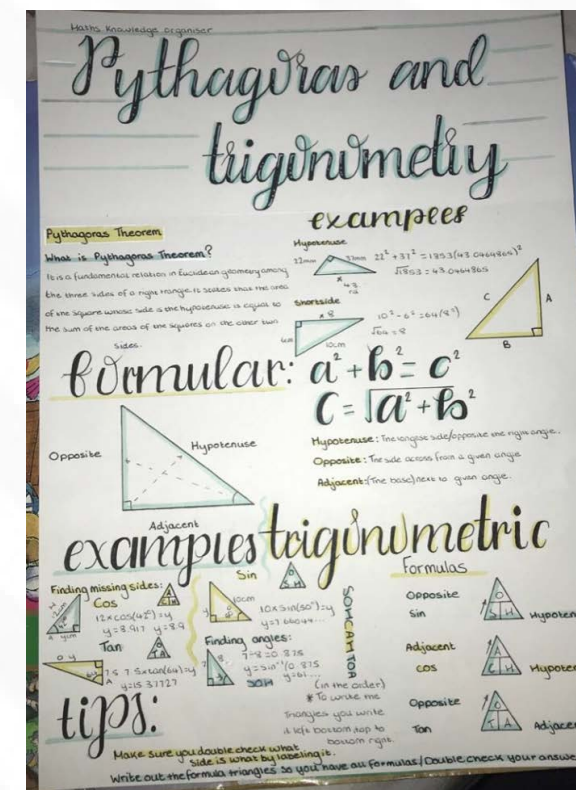 Maths Knowledge organiser
Pythagoras and
trigonometry
examples
Pythagoras Theorem
What is Pythagoras Theorem?
It is a fundamental relation in Euclidean geometry among
the three sides of a right triangle. It states that the area
of the square whose side is the hypotenuse is equal to
the sum of the areas of the squares on the other two
sides.
Hypotenuse
22mm 37mm 22² + 37² = 1853 (43.0464865)²
√1853 = 43.0464865
x
Shortside
x 8
10² - 6² = 64 (8²)
√64 = 8
6cm
10cm
C A
B
formular: a² + b² = c²
C = √a² + b²
Hypotenuse: The longest side/opposite the right angle.
Opposite: The side across from a given angle
Adjacent: (The base) next to given angle.
Opposite
Hypotenuse
Adjacent
examples trigonometric
Formulas
Finding missing sides:
Cos
12 x cos(42°) = y
y = 8.917 y = 8.9
Tan
7.5 7.5 x tan(64) = y
y = 15.37727
Sin
10cm
10 x Sin(50°) = y
y = 7.66044...
Finding angles:
7÷8 = 0.875
y = sin⁻¹(0.875
y = 61...
SOH
SOHCAHTOA
(in the order)
* To write the
triangles you write
it left bottom, top to
bottom right.
Opposite
Sin
O
S H
Hypoten
Adjacent
cos
A
C H
Hypoten
Opposite
Tan
O
T A
Adjacen
tips:
Make sure you double check what
side is what by labeling it.
Write out the formula triangles so you have all formulas/Double check your answe